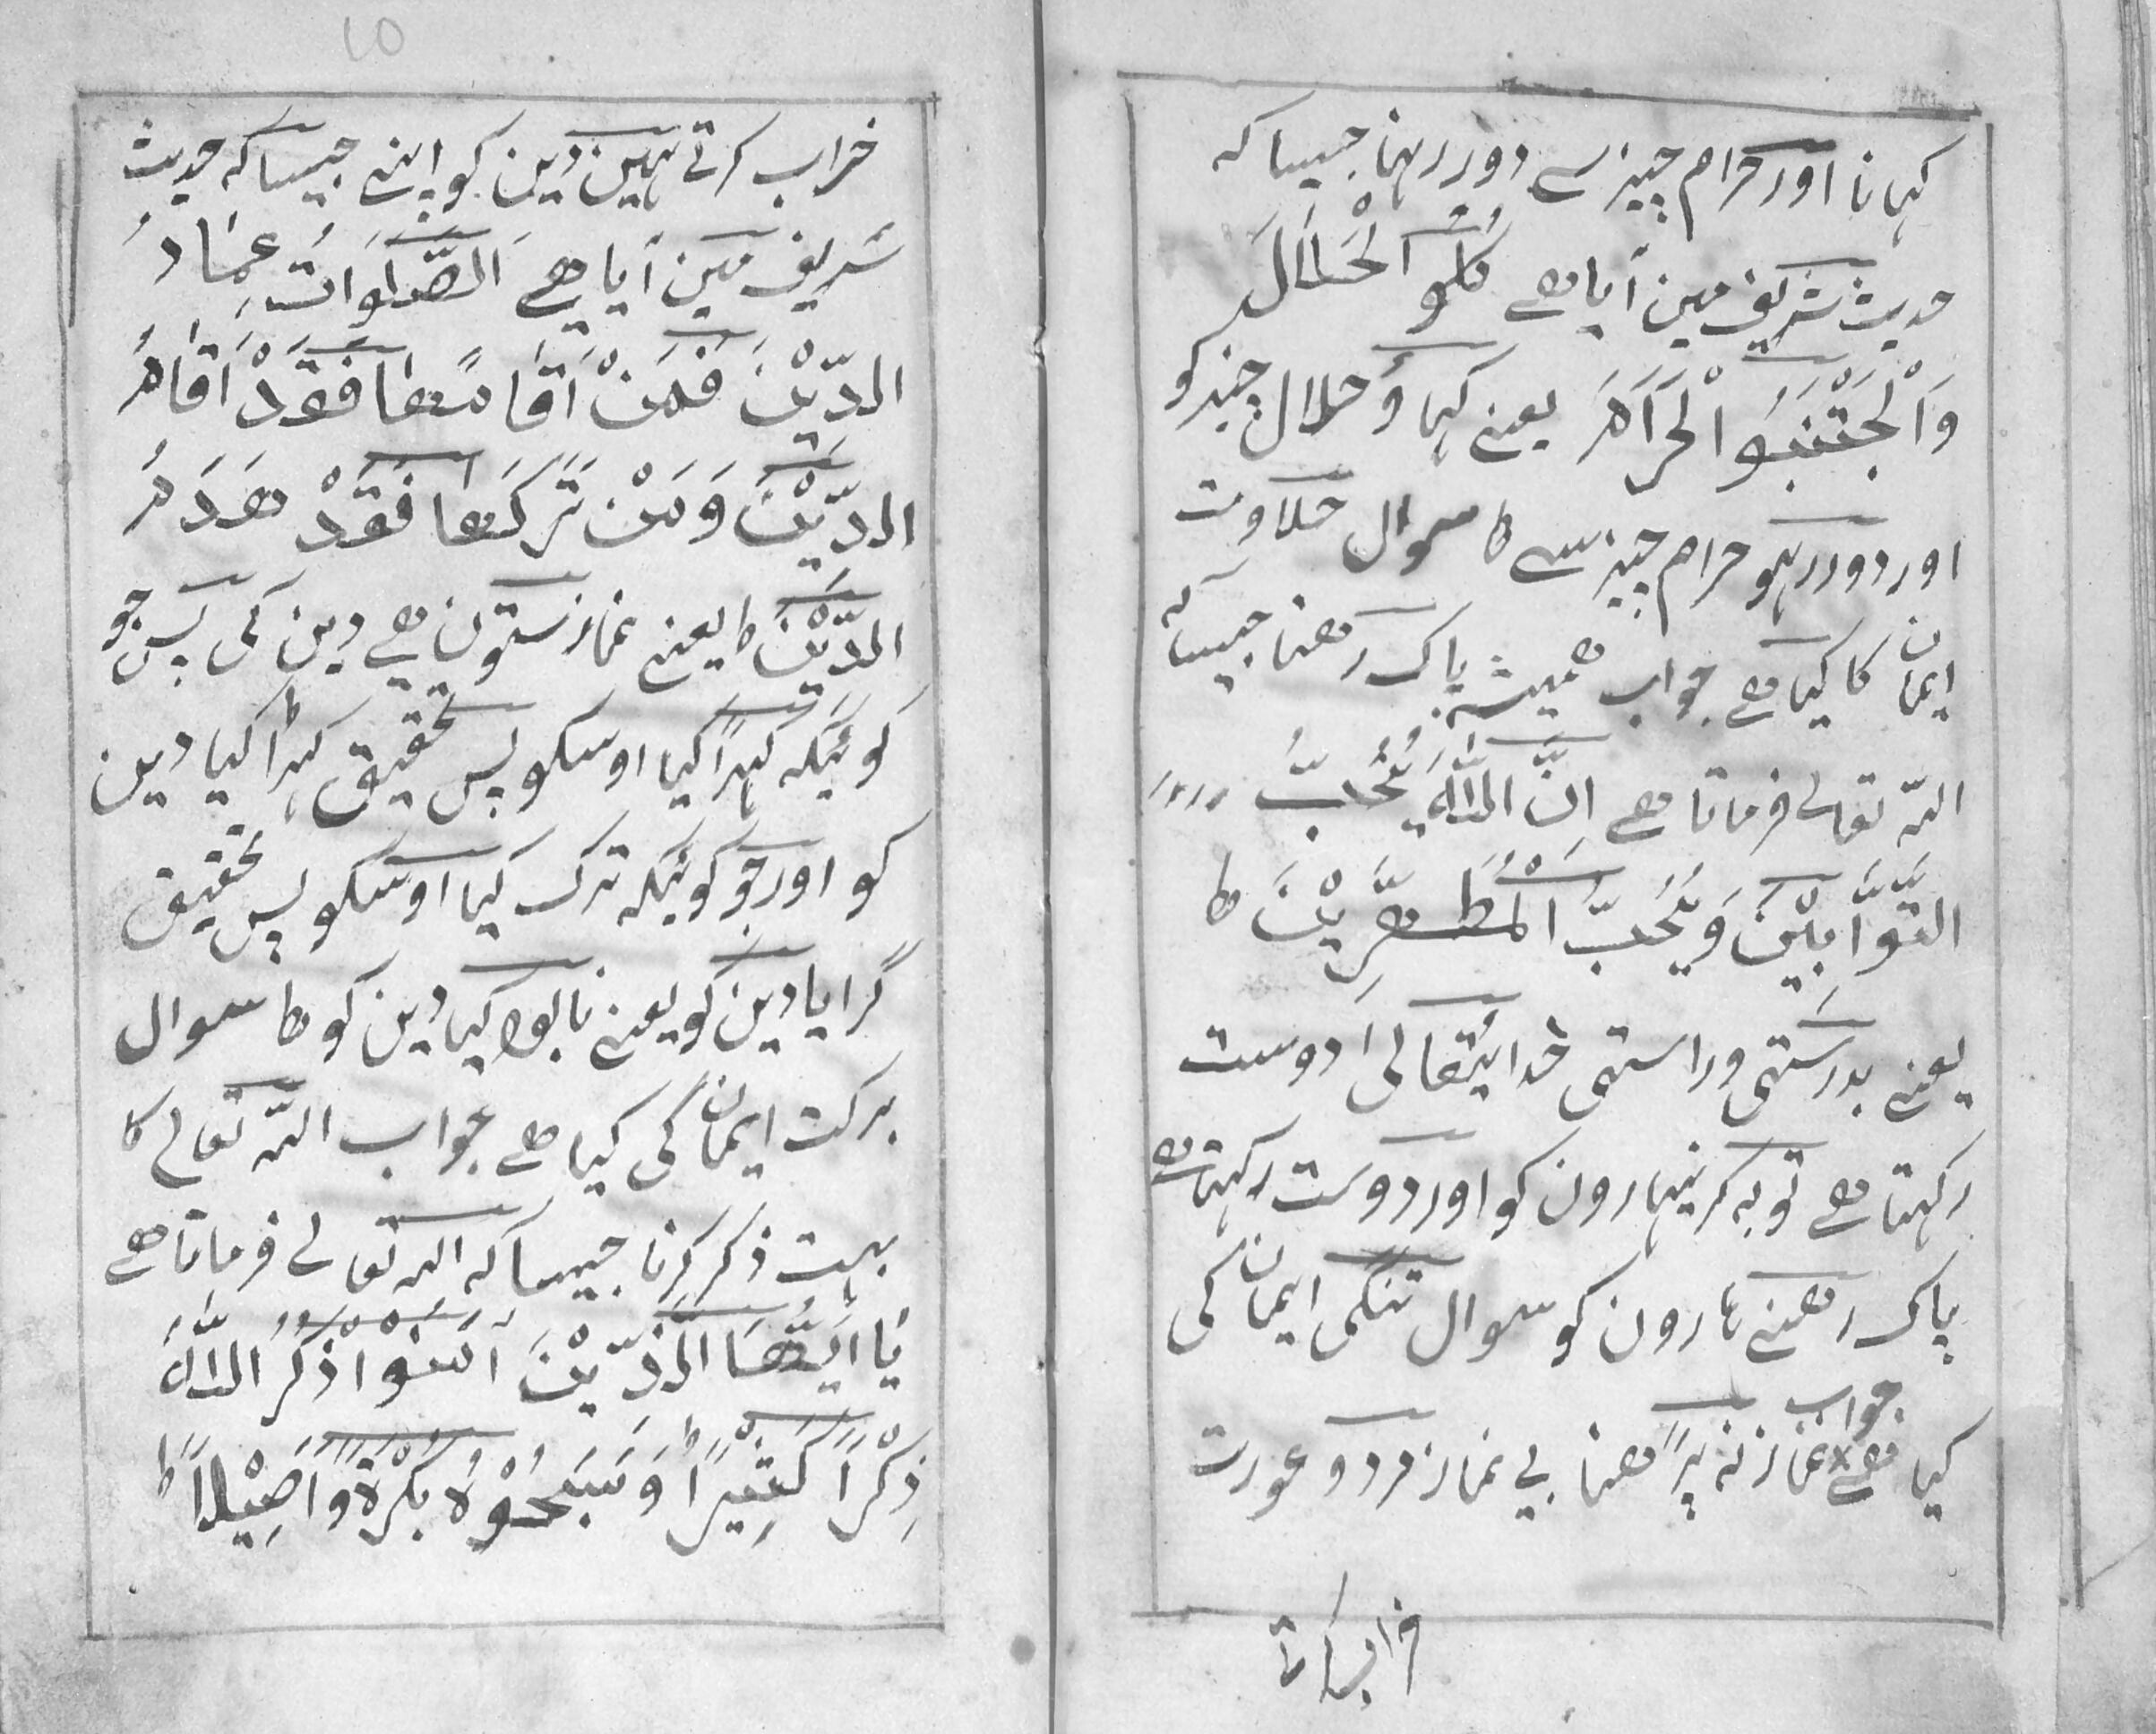 کہانا اور حرام چیز سے دور رہنا جیسا کہ
حدیث شریف مین آیا ھے کُلُوا الْحَلَالَ
وَاْلجْتَنِبَوُا الْحَرَامَ یعنے کہاوٗ حلال چیز کو
اور دور رہو حرام چیز سے ط سوال حلاوت
ایمان کا کیا ھے جواب ھمیشہ پاک رھنا جیسا کہ
اللہ تعالے فرماتا ھے اِنَّ اللّٰہَ یُحُبُّ
التَّوَّابِیْنَ وَیُحُبُّ الْمُطَھِّرِیْنَ ط
یعنے بدرستی وراستی خدایتعالیٰ دوست
رکہتا ھے توبہ کرنیہارون کو اور دوست رکہتا ھے
پاک رھنے ہارون کو سوال تنگی ایمان کی
کیا ھے جواب نماز نہ پڑھنا بی نماز مرد و عورت
خراب کرتے
10
خراب کرتے ہین دین کو اپنے جیسا کہ حدیث
شریف مین آیا ھے اَلصَّلَوَاتُ عِمَادُ
الدِّیْنِ فَمَنْ اَقَامَھَا فَقَدْ اَقَامَ
الدِّیْنَ وَمَنْ تَرَکَھَا فَقَدْ ھَدَمَ
الدِّیْنَ ط یعنے نماز ستون ھے دین کی پس جو
کوئیکہ کہڑا کیا اوسکو پس تحقیق کہڑا کیا دین
کو اور جو کوئیکہ ترک کیا اوسکو پس تحقیق
گرایا دین کو یعنے نابود کیا دین کو ط سوال
برکت ایمان کی کیا ھے جواب اللہ تعالے کا
بہت ذکر کرنا جیسا کہ اللہ تعالے فرماتا ھے
یَا اَیُّھَا الَّذِّیْنَ آمَنُوْا اذْکُرُ اللّٰہَ
ذِکْرًا کَثِیْرًا وَسَبِّحُوْہُ بُکْرَۃً وَّاَصِیْلًا ط